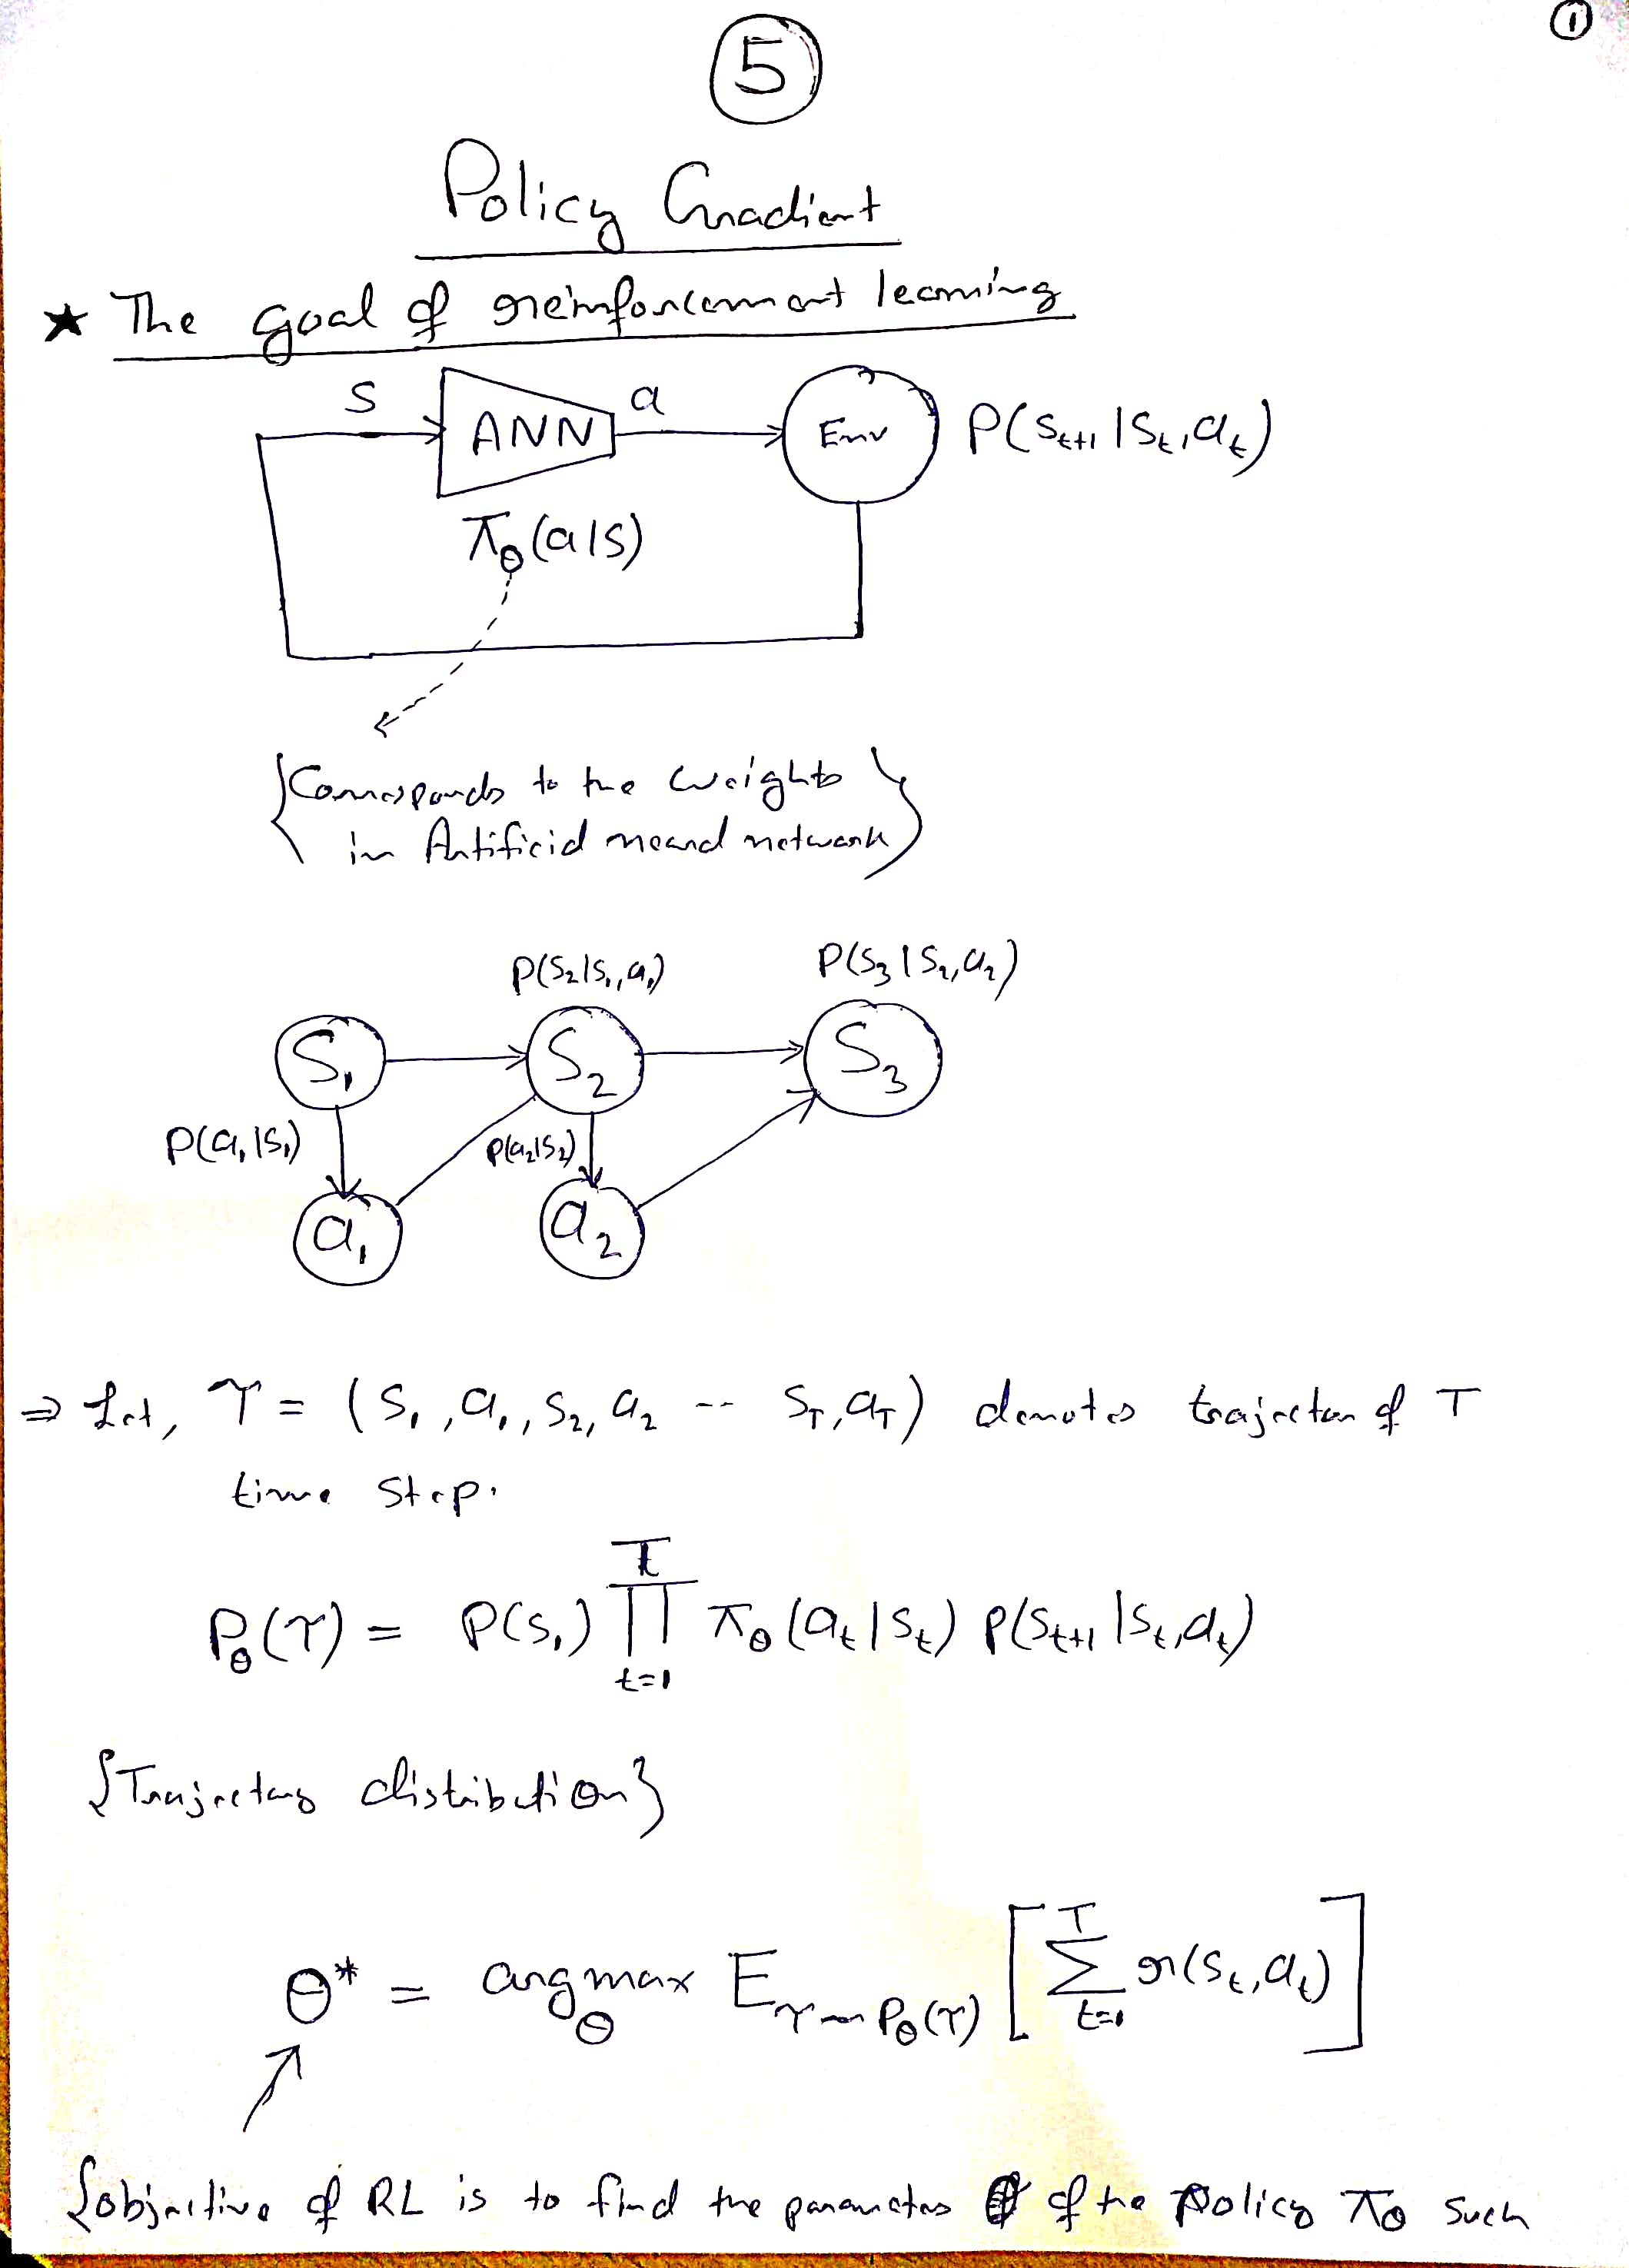 ①
⑤
Policy Gradient
★ The goal of reinforcement learning
S ANN a Env P(S_{t+1} | S_t, a_t)
π_θ(a|s)
{Corresponds to the weights
in Artificial neural network}
P(S_2|S_1, a_1) P(S_3 | S_2, a_2)
S_1 S_2 S_3
P(a_1|S_1) P(a_2|S_2)
a_1 a_2
⇒ Let, τ = (S_1, a_1, S_2, a_2 -- S_T, a_T) denotes trajector of T
time step.
P_θ(τ) = P(S_1) ∏_{t=1}^{T} π_θ(a_t | S_t) P(S_{t+1} | S_t, a_t)
{Trajectory distribution}
θ* = argmax_θ E_{τ∼P_θ(τ)} [ Σ_{t=1}^{T} r(S_t, a_t) ]
{objective of RL is to find the parameters θ of the policy π_θ such